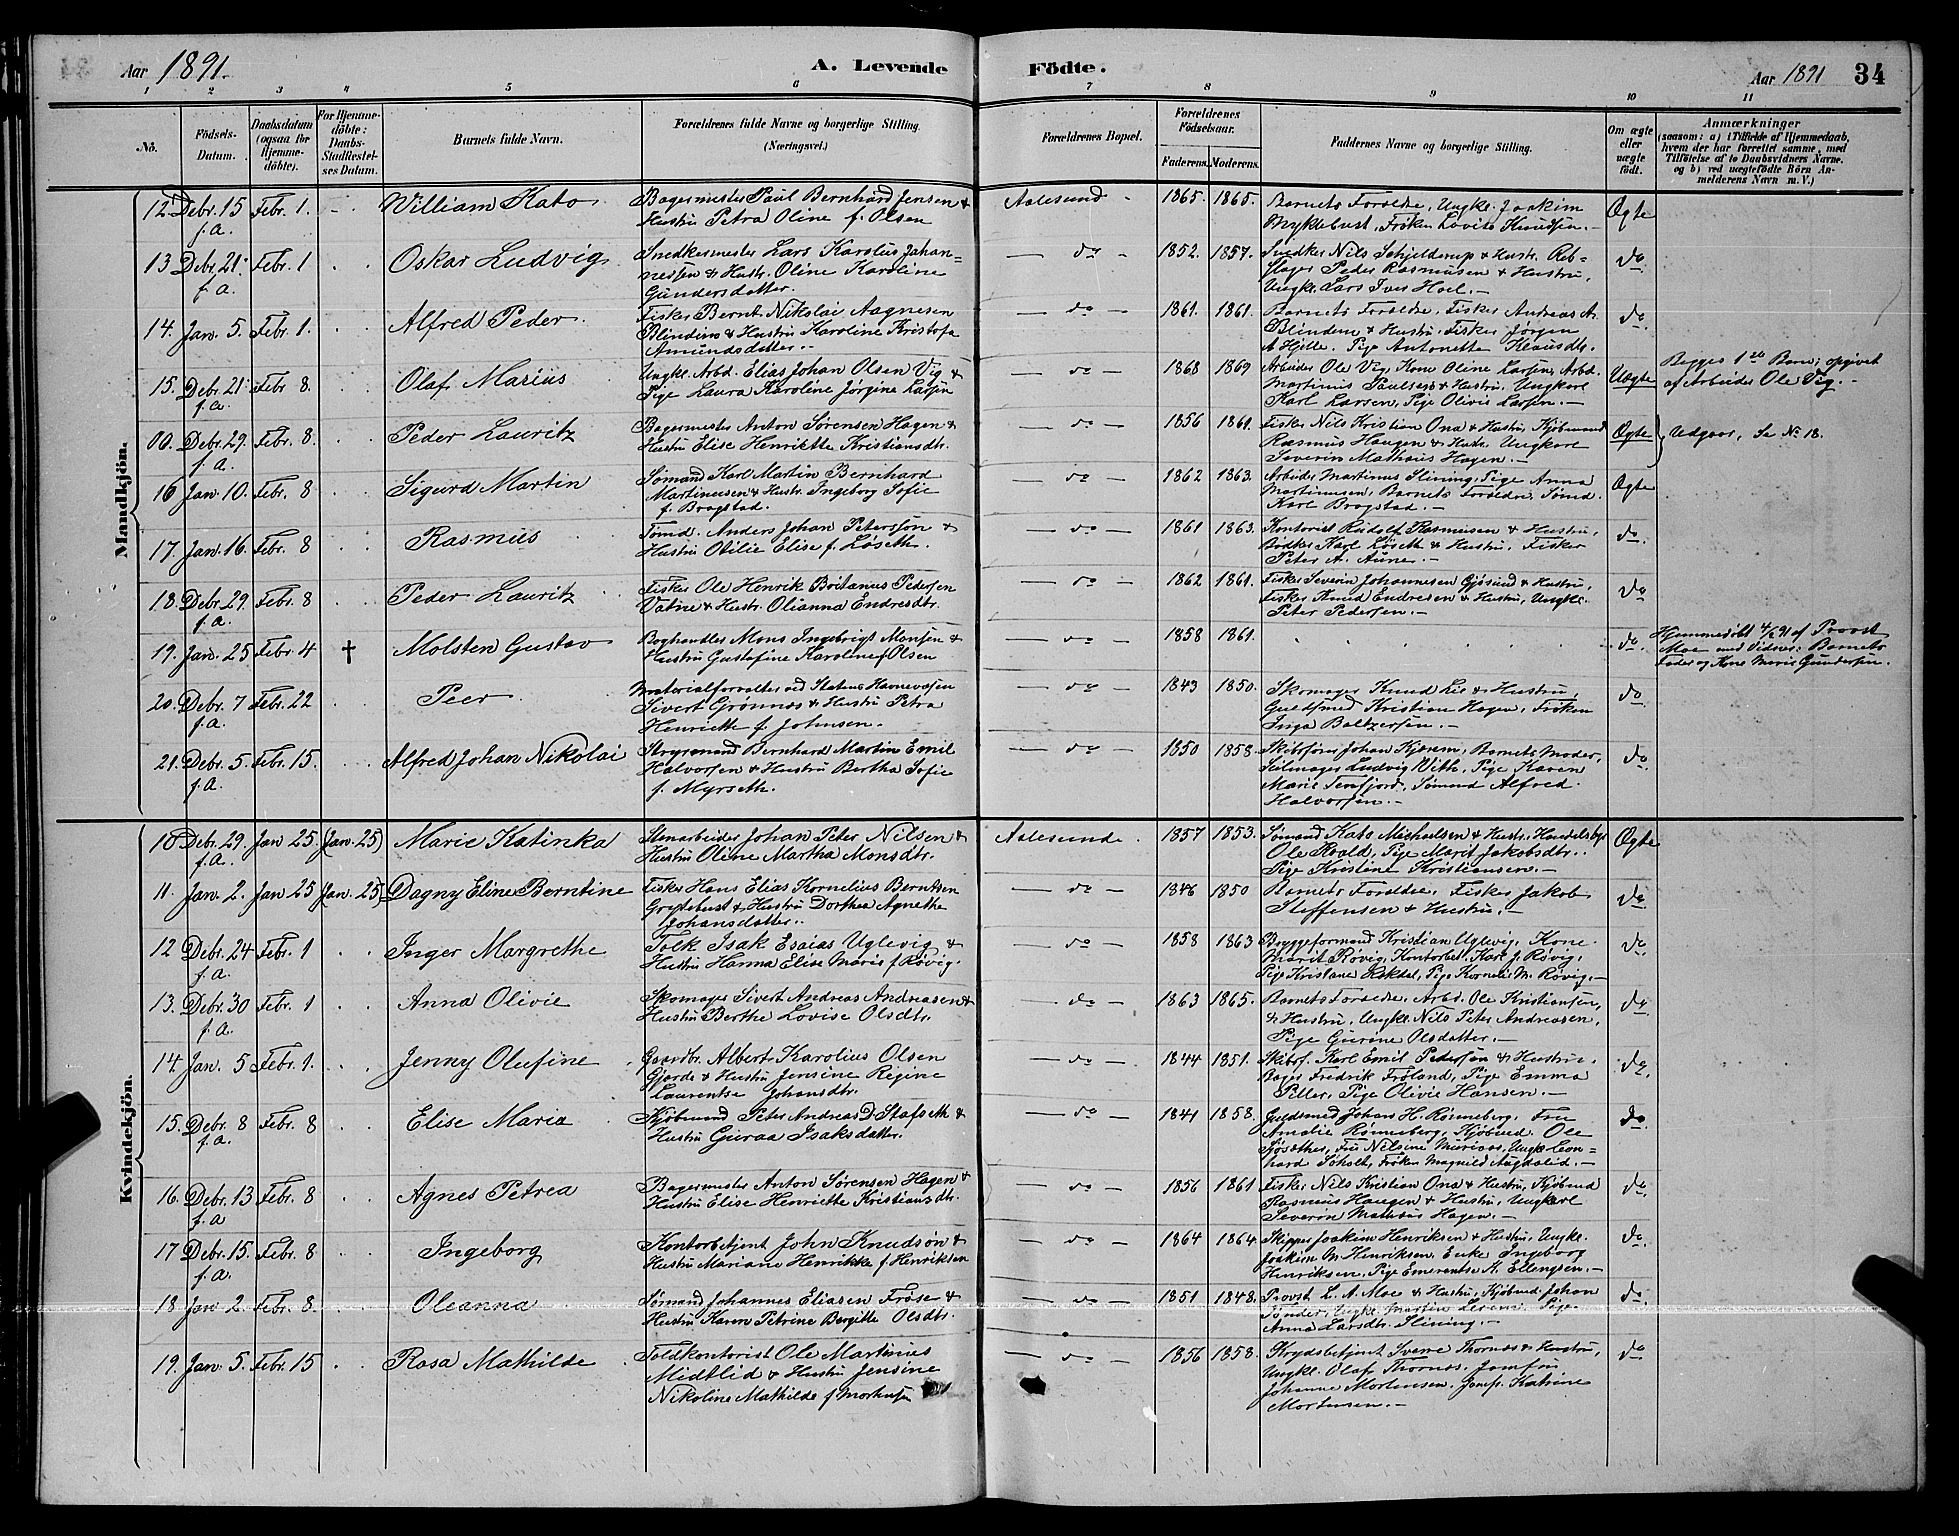 Aar 1891. A. Levende Födte. Aar 1891 34
1 2 3 4 5 6 7 8 9 10 11
Nô. Födsels-Datum. Daabsdatum (ogsaa for Hjemmedöbte). For Hjemmedöbte: Daabs-Stadfestelses Datum. Barnets fulde Navn. Forældrenes fulde Navne og borgerlige Stilling. (Næringsvei.) Forældrenes Bopæl. Forældrenes Födselsaar. Faderens. Moderens. Faddernes Navne og borgerlige Stilling. Om ægte eller uægte födt. Anmærkninger (saasom: a) i Tilfælde af Hjemmedaab, hvem der har forrettet samme, med Tilföielse af to Daabsvidners Navne, og b) ved uægtefödte Börn Anmelderens Navn m. V.)
Mandkjön.
12. Debr. 15 Febr. 1. - William Kato Bagermester Paul Bernhard Jensen & Aalesund 1865. 1865. Barnets Forældre, Ungk. Joakim Ægte
f.a. Hustru Petra Oline f. Olsen Myklebust, Frøken Lovise Knudsen.
13 Debr. 21. Febr. 1 Oskar Ludvig Snedkermester Lars Karolus Johan- do 1852. 1857. Snedker Nils Schjelderup & Hustr. Reb- do
f.a. nessen & Hustr. Oline Karoline slager Peder Rasmussen & Hustru,
Gundersdatter. Ungk. Lars Iver Hoel.
14. Jan. 5. Febr. 1. Alfred Peder Fisker Bernt Nikolai Aagnesen do 1861. 1861. Barnets Forældre, Fisker Andreas A. do
Blindem & Hustru Karoline Kristofa Blindem & Hustru. Fisker Jørgen
Amundsdatter. A Hjelle. Pige Antonette Klausdtr.
15. Debr. 21. Febr 8. Olaf Marius Ungk. Arbd. Elias Johan Olsen Vig & do 1868 1869 Arbeider Ole Vig, Kone Oline Larsen, Arbd. Uægte Begges 1ste Barn; opgivet
f.a. Pige Laura Karoline Jørgine Larsen Martinus Paulsen & Hustru. Ungkarl af Arbeider Ole Vig.
Karl Larsen, Pige Olivie Larsen.
00. Debr. 29. Febr. 8. Peder Lauritz Bagermester Anton Sørensen Hagen & do 1856 1861. Fisker Nils Kristian Ona & Hustru, Kjøbmand Ægte Udgaar, Se No 18.
f.a. Hustru Elise Henriette Kristiansdtr. Rasmus Haugen & Hustr. Ungkarl
Severin Mathæus Hagen.
16 Jan. 10. Febr. 8 Sigurd Martin Sømand Karl Martin Bernhard do 1862 1863. Arbeider Martinus Slining, Pige Anna Ægte
Martinusen & Hustr. Ingeborg Sofie Martinusen, Barnets Forældre, Sømd.
f. Bragstad. Karl Bragstad.
17. Jan. 16. Febr. 8 Rasmus Tømd. Anders Johan Peterssøn & do 1861 1863. Kontorist Rudolf Rasmussen & Hustru, do.
Hustru Otilie Elise f. Løseth. Bødker Karl Løseth & Hustru, Fisker
Peter A. Aune.
18 Debr. 29. Febr. 8 Peder Lauritz Fisker Ole Henrik Boitanus Pedersen do 1862 1861. Fisker Severin Johannesen Gjøsund & Hustru, do
f.a. Vatne & Hustr. Olianna Endresdtr. Fisker Knud Endresen & Hustru, Ungk.
Peter Pedersen.
19. Jan. 25 Febr. 4 † Molsten Gustav Boghandler Mons Ingebrigt Monsen & do 1858 1861. do. Hjemmedøbt 4/2 91 af Provst
Hustru Gustafine Karoline f. Olsen Moe med Vidner: Barnets
Fader og Kone Marie Gundersen.
20. Debr. 7 Febr. 22 Peer Materialforvalter ved Statens Havnevæsen do 1843 1850. Skomager Knud Lie & Hustru, do
f.a. Sivert Grønnæs & Hustru Petra Guldsmed Kristian Hagen, Frøken
Henriette f. Johnsen. Inga Baltzersen.
21. Debr. 5. Febr. 15. Alfred Johan Nikolai Styrmand Bernhard Martin Emil do 1850 1858. Skibsfører Johan Kjærem, Barnets Moder, do
f.a. Halvorsen & Hustru Bertha Sofie Seilmager Ludvig With, Pige Karen
f. Myrseth. Marie Tenfjord, Sømand Alfred
Halvorsen.
Kvindekjön.
10 Debr. 29. Jan 25. (Jan. 25) Marie Katinka Stenarbeider Johan Peter Nilsen & Aalesund 1857 1853. Sømand Kato Michaelsen & Hustr. Handelsbg. Ægte
f.a. Hustru Oline Martha Monsdtr. Ole Roald, Pige Marit Jakobsdtr.
Pige Kristine Kristiansen.
11. Jan. 2. Jan 25 (Jan. 25) Dagny Eline Berntine Fisker Hans Elias Kornelius Berntsen do 1846 1850 Barnets Forældre, Fisker Jakob do.
Grytebust & Hustru Dorthea Agnethe Steffensen & Hustru.
Johansdatter.
12 Debr. 24 Febr. 1 Inger Margrethe Tolk Isak Esaias Uglevig & do 1858 1863 Bryggeformand Kristian Uglevig, Kone do
f.a. Hustru Hanna Elise Marie f. Røvig. Marit Røvig, Kontorbet. Karl J. Røvig,
Pige Kristane Rekdal, Pige Kornelia M. Røvig.
13. Debr. 30 Febr. 1 Anna Olivie Skomager Sivert Andreas Andreasen & do 1863 1865. Barnets Forældre, Arbd. Ole Kristiansen, do
f.a. Hustru Berthe Lovise Olsdtr. & Hustru, Ungk. Nils Peter Andreasen,
Pige Gurine Olsdatter.
14 Jan. 5 Febr. 1. Jenny Olufine Gaardbr. Albert Karolius Olsen do 1844 1851. Skibsf. Karl Emil Pedersen & Hustru, do
Gjerde & Hustru Jensine Regine Bager Fredrik Frøland, Pige Emma
Laurentse Johansdtr. Piller, Pige Olivie Hansen.
15. Debr. 8 Febr. 8 Elise Maria Kjøbmand Peter Andreas D. Stafseth & do 1841 1858. Guldsmed Johan H. Rønneberg, Fru do
f.a. Hustru Guraa Isaksdatter. Amalie Rønneberg, Kjøbmd. Ole
Fru Nilsine Ungk. Leon-
hard Søholt, Frøken Magnild Aagdalid.
16. Debr. 13 Febr. 8 Agnes Petrea Bagermester Anton Sørensen Hagen & do 1856 1861 Fisker Nils Kristian Ona & Hustru, Kjøbmd do.
f.a Hustru Elise Henriette Kristiansdtr. Rasmus Haugen & Hustru, Ungkarl
Severin Mathæus Hagen.
17 Debr. 15. Febr. 8 Ingeborg Kontorbetjent John Knudsøn & do 1864 1864. Skipper Joakim Henriksen & Hustru, Ungk. do.
f.a. Hustru Mariane Henrikke f. Henriksen Joakim M. Henriksen, Enke Ingeborg
Henriksen, Pige Emerentse A. Ellengsen.
18 Jan 2. Febr. 8. Oleanna Sømand Johannes Eliasen Frøse & do 1851 1848. Provst L. A. Moe & Hustru, Kjøbmd. Johan do.
Hustru Karen Petrine Bergitte Olsdtr. Tønder, Ungk. Martin Pige
Anna Larsdtr. Slining.
19. Jan. 5. Febr. 15 Rosa Mathilde Toldkontorist Ole Martinius do 1856 1858. Krydsbetjent Sverre Thornes & Hustru, do
Midtlid & Hustru Jensine Ungk. Olaf Thornes, Jomfru
Nikoline Mathilde f. Morhusen Johanne Mortensen, Jomf. Katrine
Mortensen.